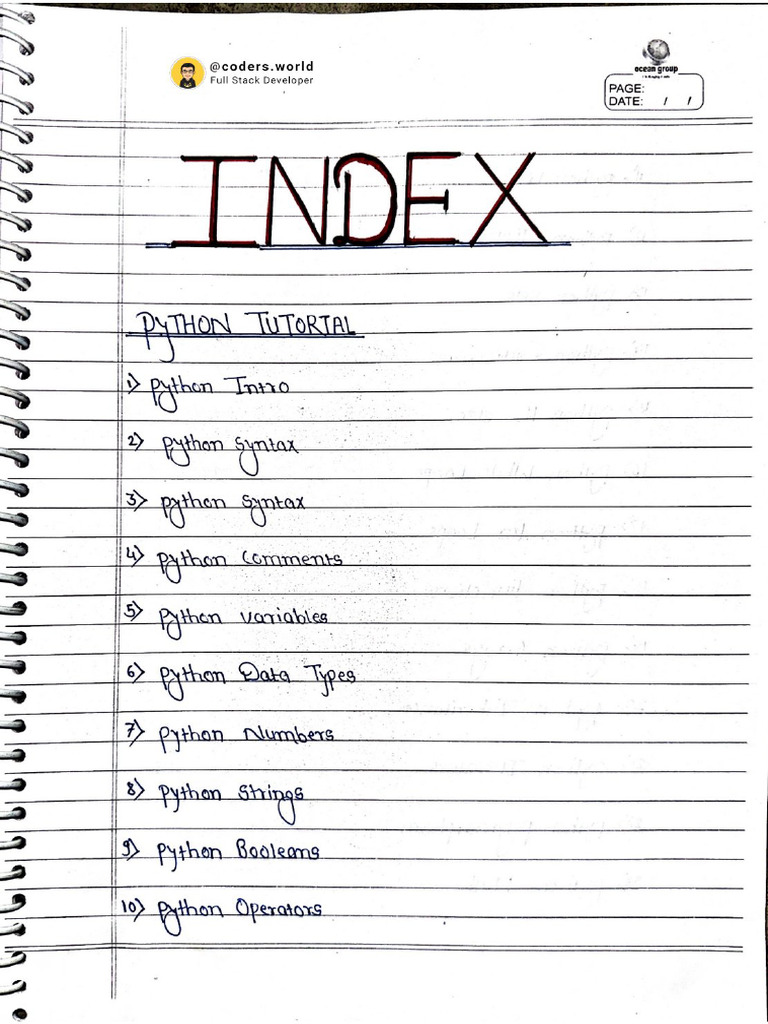 @coders.world
Full Stack Developer
ocean group
PAGE:
DATE: / /
INDEX
PYTHON TUTORIAL
1) python Intro
2) python syntax
3) python syntax
4) python comments
5) python variables
6) python Data Types
7) python Numbers
8) python strings
9) python Booleans
10) python Operators